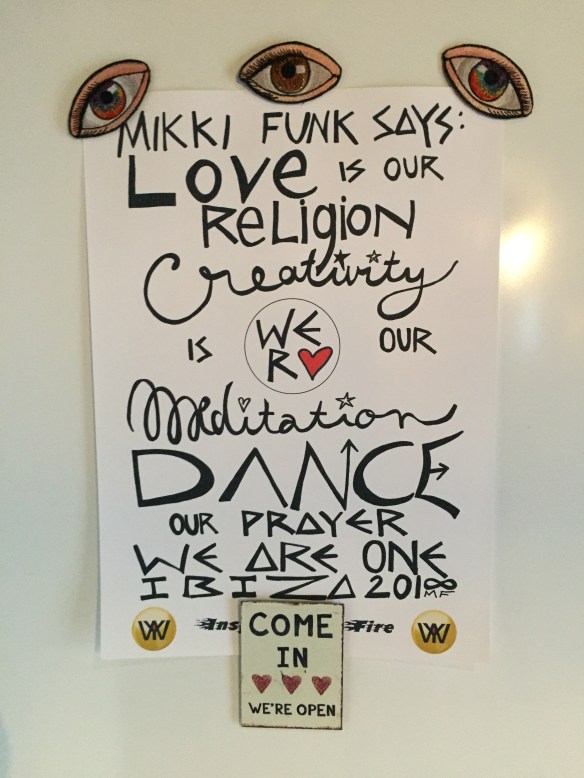 MIKKI FUNK SAYS:
LOVE IS OUR
RELIGION
Creativity
IS WE R ♥ OUR
Meditation
DANCE
OUR PRAYER
WE ARE ONE
IBIZA 201∞
MF
Fire
COME
IN
WE'RE OPEN